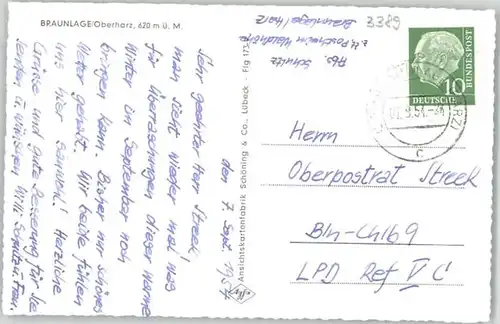 BRAUNLAGE/Oberharz, 620 m ü. M.
den 7. Sept. 1954
Sehr geehrter Herr Streek!
man sieht wieder mal was
für Überraschungen dieser warme
Winter im September noch
bringen kann. Bisher nur schönes
Wetter gehabt. Wir beide fühlen
uns hier sauwohl! Herzliche
Grüsse und gute Besserung für die
senden u. wünschen Willi Schultz u. Frau.
Ansichtskartenfabrik Schöning & Co., Lübeck · Flg 173
Abs. Schultz
z.Z. Postheim Waldmühle
Braunlage/Harz
3389
DEUTSCHE
BUNDESPOST
10
C
Herrn
Oberpostrat Streek
Bln-Chlb 9
LPD Ref V C